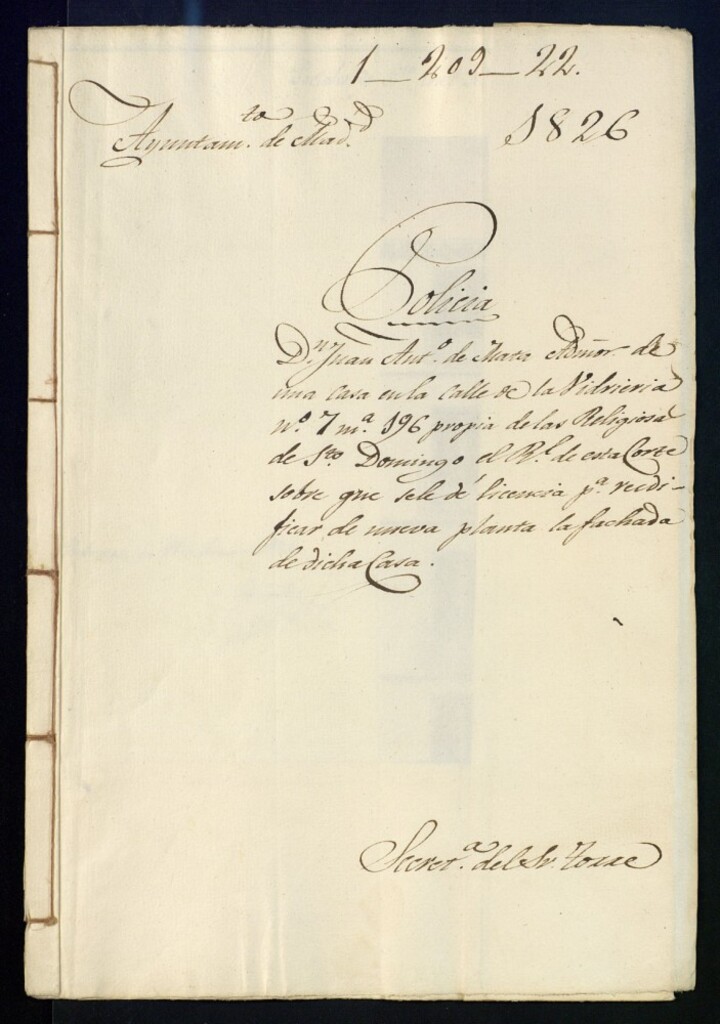 1 — 209 — 22.
Ayuntam.to de Mad.d
1826
Policia
D.n Juan Ant.o de Mata Admor. de
una casa en la Calle de la Vidrieria
n.o 7 m.a 196 propia de las Religiosas
de S.to Domingo el R.l de esta Corte
sobre que se le dé licencia p.a reedi-
ficar de nueva planta la fachada
de dicha Casa.
Secret.a del Sr. Torre